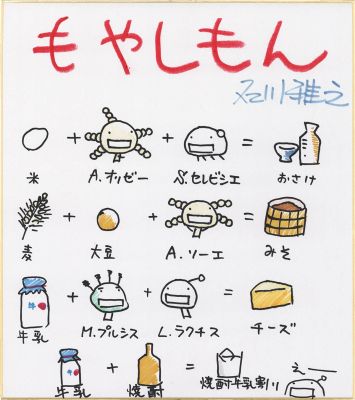 もやしもん
石川雅之
米 + A.オリゼー + S.セレビシエ = おさけ
麦 + 大豆 + A.ソーエ = みそ
牛乳 + M.プルシス + L.ラクチス = チーズ
牛乳 + 焼酎 = 焼酎牛乳割り
えー